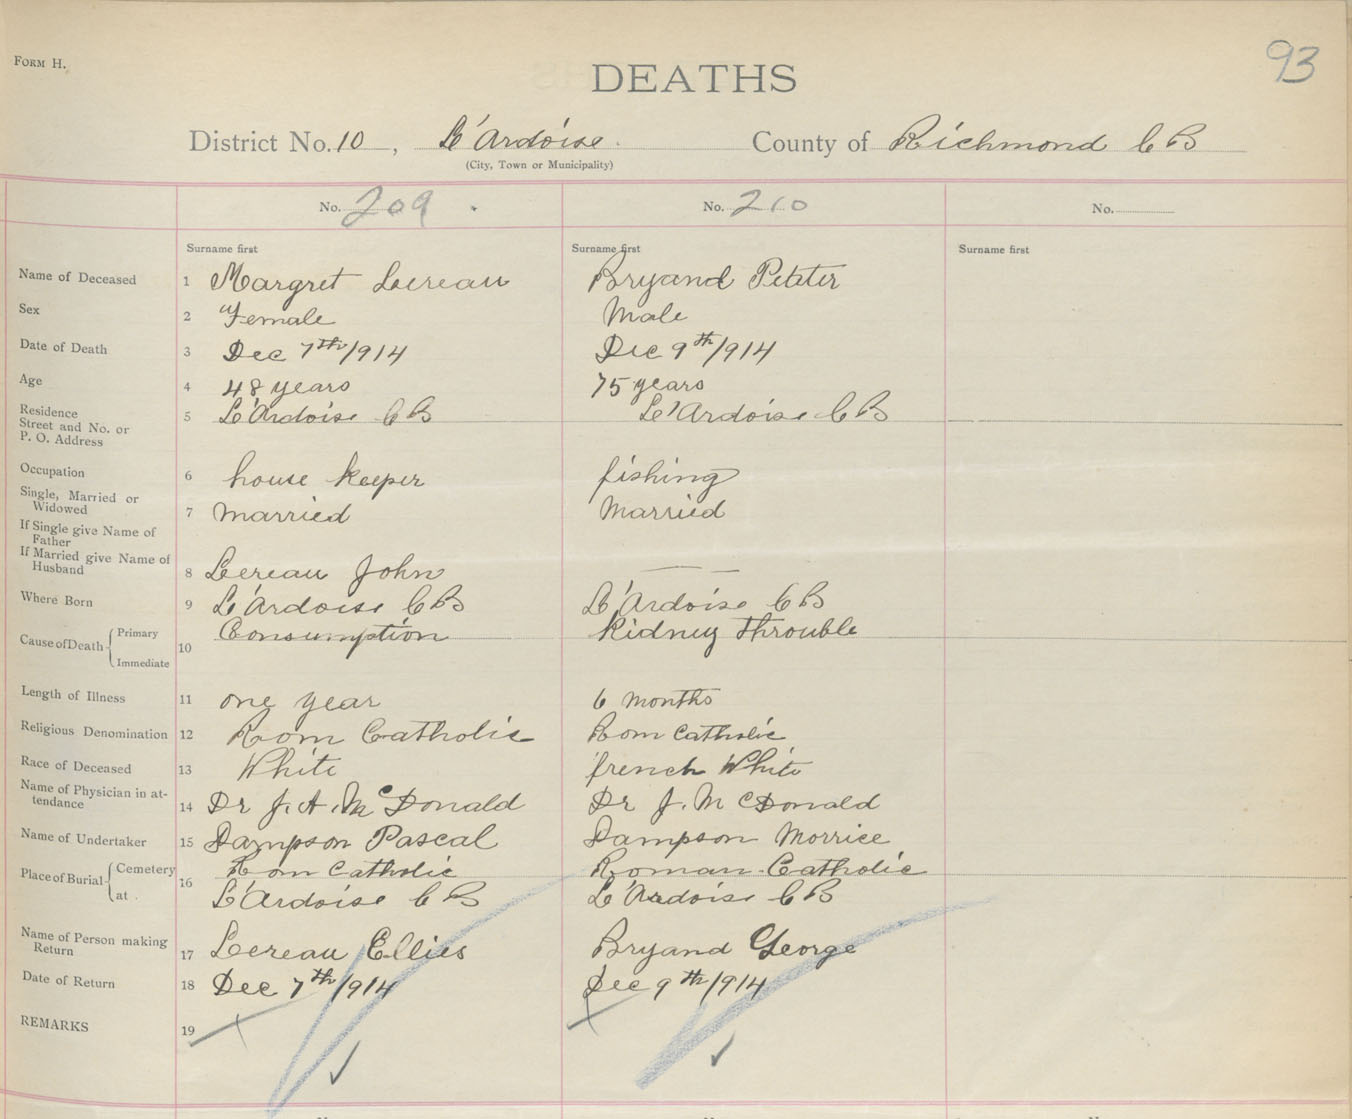 93
FORM H.
DEATHS
District No. 10, L'Ardoise. County of Richmond C B
(City, Town or Municipality)
No. 209 No. 210 No.
Surname first Surname first Surname first
Name of Deceased 1 Margret Lereau Bryand Petiter
Sex 2 Female Male
Date of Death 3 Dec 7th/914 Dec 9th/914
Age 4 48 years 75 years
Residence
Street and No. or
P. O. Address 5 L'Ardoise C B L'Ardoise C B
Occupation 6 house keeper fishing
Single, Married or
Widowed 7 Married Married
If Single give Name of
Father
If Married give Name of
Husband 8 Lereau John
Where Born 9 L'Ardoise C B L'Ardoise C B
Cause of Death Primary 10 Consumption Kidney Throuble
Immediate
Length of Illness 11 one year 6 months
Religious Denomination 12 Rom Catholic Rom Catholic
Race of Deceased 13 White french White
Name of Physician in at-
tendance 14 Dr J. A. McDonald Dr J. McDonald
Name of Undertaker 15 Dampson Pascal Dampson Morrice
Place of Burial Cemetery 16 Rom Catholic Roman Catholic
at L'Ardoise C B L'Ardoise C B
Name of Person making
Return 17 Lereau Ellies Bryand George
Date of Return 18 Dec 7th/914 Dec 9th/914
REMARKS 19